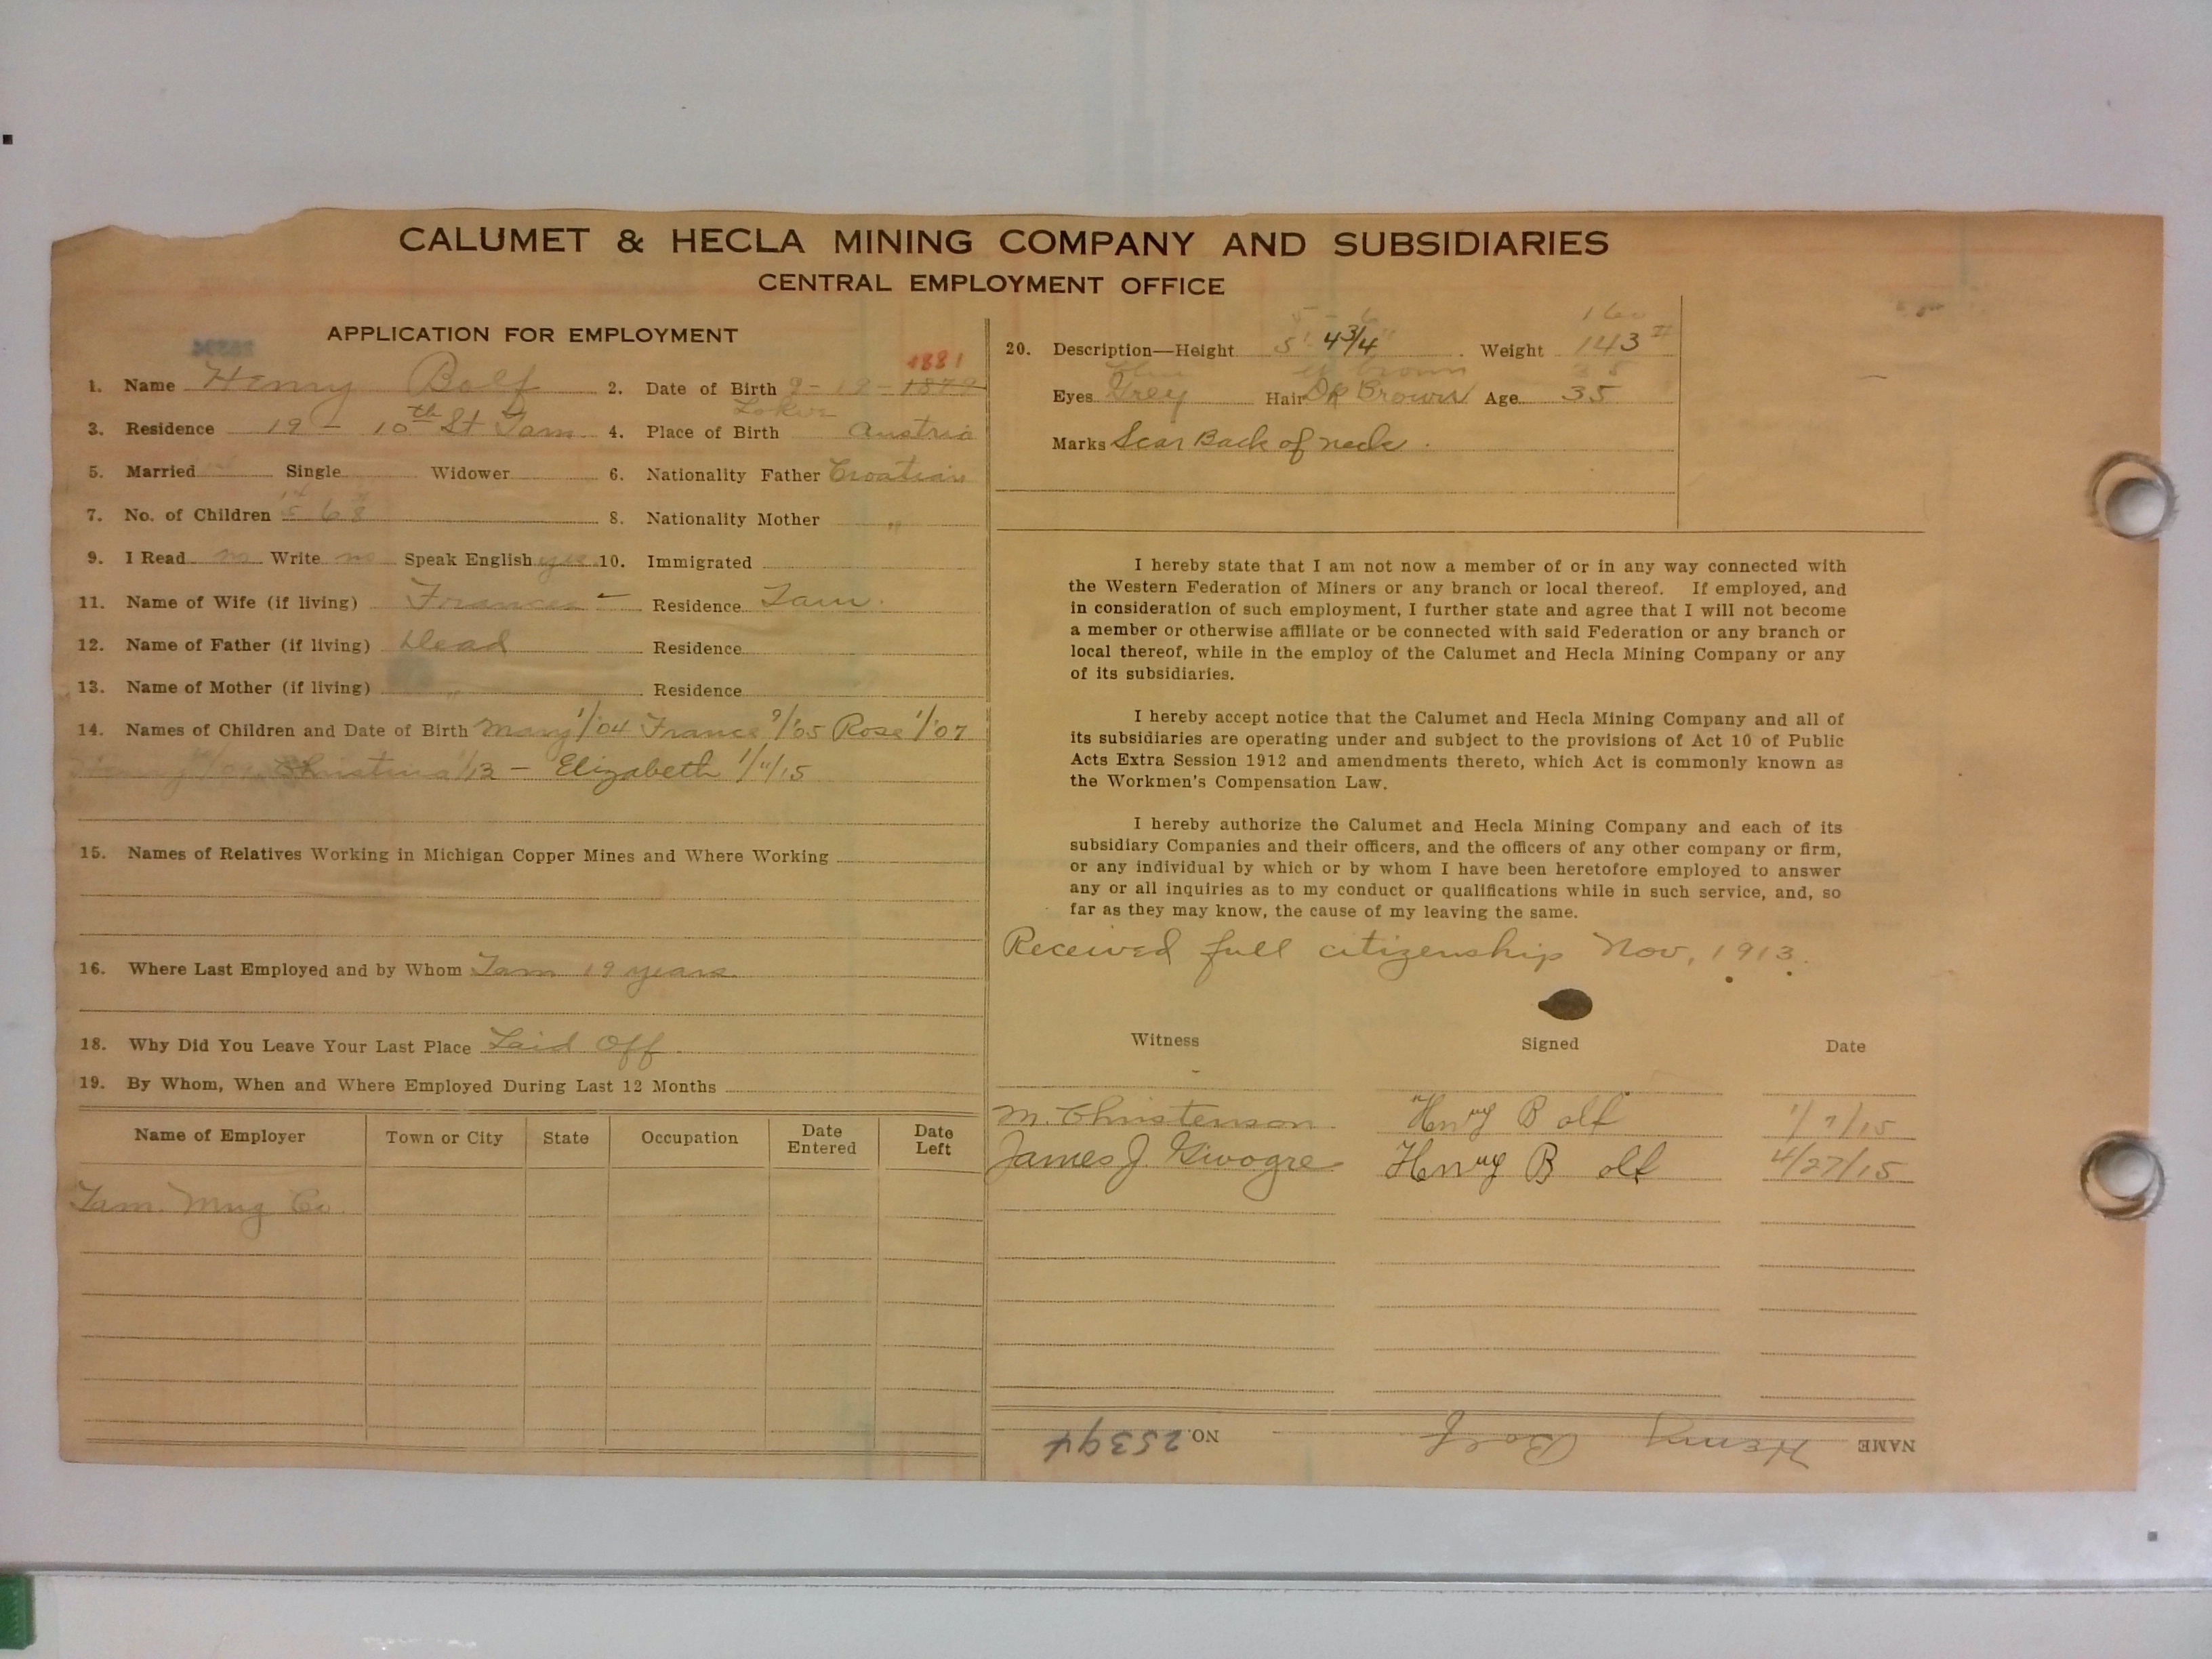 CALUMET & HECLA MINING COMPANY AND SUBSIDIARIES
CENTRAL EMPLOYMENT OFFICE
APPLICATION FOR EMPLOYMENT
1. Name Henry Bolf 2. Date of Birth 9-12- 1879 1881
3. Residence 19 - 10th St Tam. 4. Place of Birth Austria
5. Married Single Widower 6. Nationality Father Croatian
7. No. of Children 5 6 8 8. Nationality Mother "
9. I Read no Write no Speak English yes 10. Immigrated
11. Name of Wife (if living) Frances Residence Tam.
12. Name of Father (if living) Dead Residence
13. Name of Mother (if living) " Residence
14. Names of Children and Date of Birth Mary 1/'04 France 9/'05 Rose 1/'07
Christina 1/13 - Elizabeth 1/11/15
15. Names of Relatives Working in Michigan Copper Mines and Where Working
16. Where Last Employed and by Whom Tam 19 years
18. Why Did You Leave Your Last Place Laid Off.
19. By Whom, When and Where Employed During Last 12 Months
Name of Employer Town or City State Occupation Date Entered Date Left
Tam. Mng Co.
5 - 6 160
20. Description—Height 5' 4 3/4" Weight 143 #
Brown 38
Eyes Grey Hair Dk Brown Age 35
Marks Scar Back of neck.
I hereby state that I am not now a member of or in any way connected with
the Western Federation of Miners or any branch or local thereof. If employed, and
in consideration of such employment, I further state and agree that I will not become
a member or otherwise affiliate or be connected with said Federation or any branch or
local thereof, while in the employ of the Calumet and Hecla Mining Company or any
of its subsidiaries.
I hereby accept notice that the Calumet and Hecla Mining Company and all of
its subsidiaries are operating under and subject to the provisions of Act 10 of Public
Acts Extra Session 1912 and amendments thereto, which Act is commonly known as
the Workmen's Compensation Law.
I hereby authorize the Calumet and Hecla Mining Company and each of its
subsidiary Companies and their officers, and the officers of any other company or firm,
or any individual by which or by whom I have been heretofore employed to answer
any or all inquiries as to my conduct or qualifications while in such service, and, so
far as they may know, the cause of my leaving the same.
Received full citizenship Nov, 1913.
Witness Signed Date
M. Christenson Henry Bolf 1/7/15
James J. Henry Bolf 4/27/15
NAME Henry Bolf NO. 25394